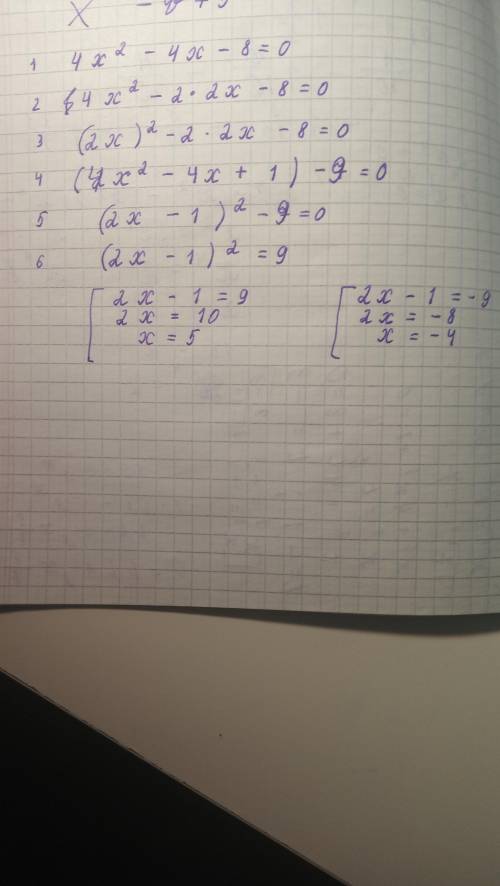 1 4x² - 4x - 8 = 0
2 4x² - 2 · 2x - 8 = 0
3 (2x)² - 2 · 2x - 8 = 0
4 (4x² - 4x + 1) - 9 = 0
5 (2x - 1)² - 9 = 0
6 (2x - 1)² = 9
2x - 1 = 9
2x = 10
x = 5
2x - 1 = -9
2x = -8
x = -4